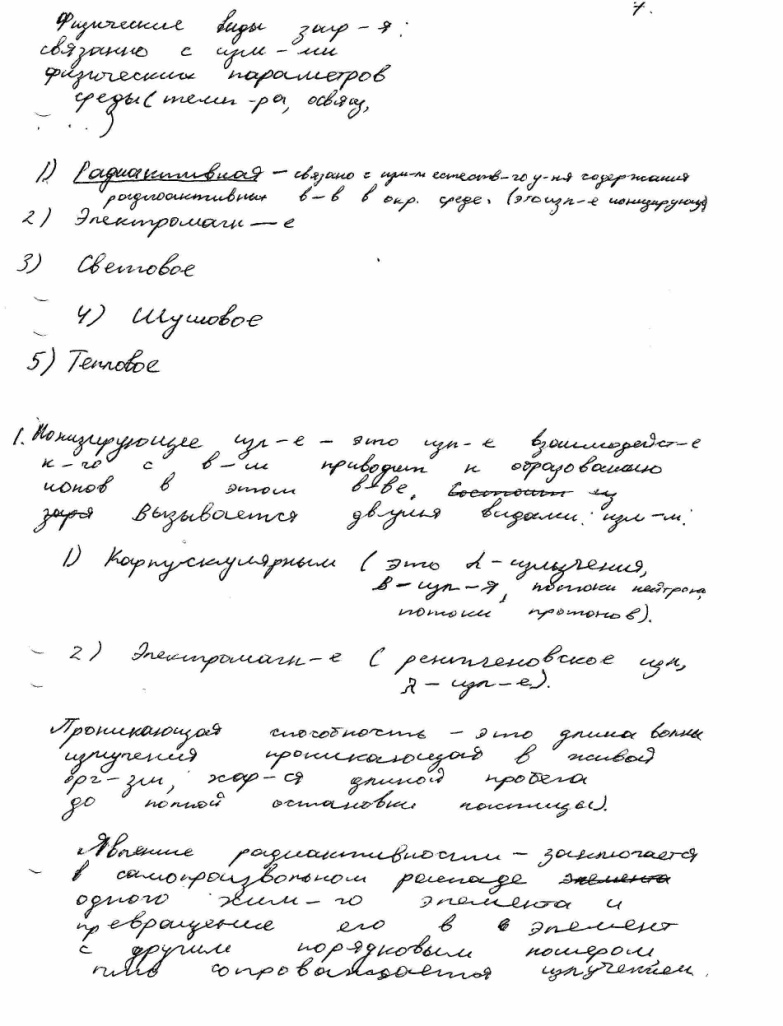 7.
Физические виды загр-я:
связанно с изм-ми
физических параметров
среды (темп-ра, освящ,
. . .)
1) Радиактивная - связано с изм-м естеств-го у-ня содержания
радиоактивных в-в в окр. среде. (это изл-е ионизирующ)
2) Электромагн-е
3) Световое
4) Шумовое
5) Тепловое
1. Ионизирующее изл-е - это изл-е взаимодейст-е
к-го с в-м приводит к образованию
ионов в этом в-ве. Состоит из
заря вызывается двумя видами: изл-м:
1) Карпускулярным (это α-излучения,
β-изл-я, потоки нейтрона,
потоки протонов).
2) Электромагн-е (рентгеновское изл,
λ-изл-е).
Проникающая способность - это длина волны
излучения проникающая в живой
орг-зм, хар-ся длиной пробега
до полной остановки частицы).
Явление радиактивности - заключается
в самопроизвольном распаде элемента
одного хим-го элемента и
превращение его в элемент
с другим порядковым номером,
сопровождается излучением.